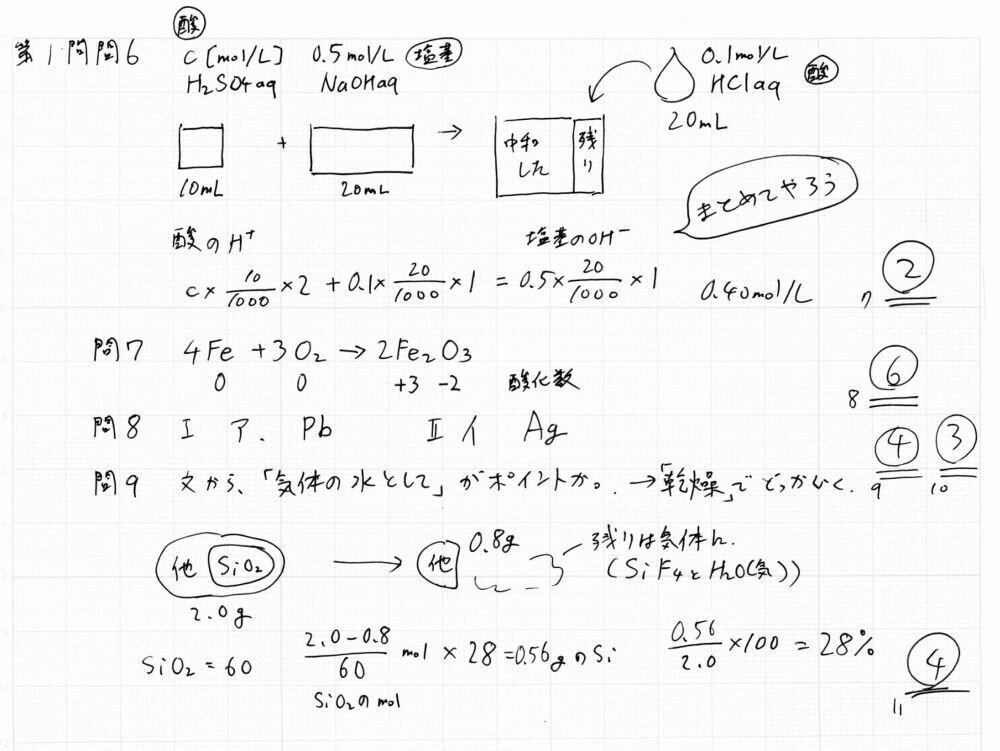 酸
第1問問6 c[mol/L] 0.5mol/L 塩基 0.1mol/L
H₂SO₄aq NaOHaq HClaq 酸
20mL
+ → 中和した 残り
10mL 20mL
まとめてやろう
酸のH⁺ 塩基のOH⁻
c× 10/1000 ×2 + 0.1× 20/1000 ×1 = 0.5× 20/1000 ×1 0.40mol/L 7 ②
問7 4Fe + 3O₂ → 2Fe₂O₃
0 0 +3 -2 酸化数 8 ⑥
問8 Ⅰ ア. Pb Ⅱ イ Ag 9 ④ 10 ③
問9 文から、「気体の水として」がポイントか。→「乾燥」でどっかいく.
他 SiO₂ → 他 0.8g 残りは気体に.
(SiF₄とH₂O(気))
2.0g
SiO₂ = 60 2.0-0.8/60 mol × 28 = 0.56gのSi 0.56/2.0 ×100 = 28% 11 ④
SiO₂のmol